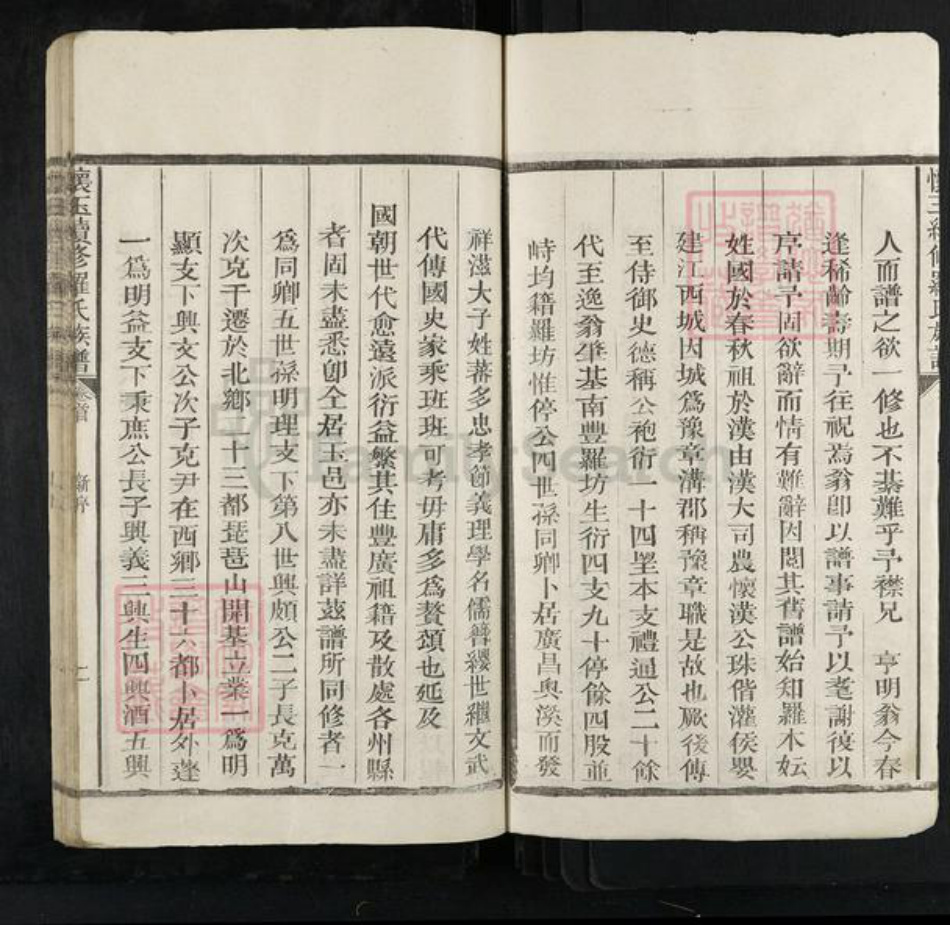 人而譜之欲一修也不綦難乎予襟兄 亨明翁今春
逢稀齡壽期予往祝焉翁卽以譜事請予以耄謝復以
序請予固欲辭而情有難辭因閱其舊譜始知羅本妘
姓國於春秋祖於漢由漢大司農懷漢公珠偕灌侯嬰
建江西城因城爲豫章溝郡稱豫章職是故也厥後傳
至侍御史德稱公袍衍一十四塋本支禮通公二十餘
代至逸翁肇基南豐羅坊生衍四支九十停條四股並
峙均籍羅坊惟停公四世孫同卿卜居廣昌奥溪而發
祥滋大子姓蕃多忠孝節義理學名儒簪纓世繼文武
代傳國史家乘班班可考毋庸多爲贅頌也延及
國朝世代愈遠派衍益繁其住豐廣祖籍及散處各州縣
者固未盡悉卽仝居玉邑亦未盡詳茲譜所同修者一
爲同卿五世孫明理支下第八世興頗公二子長克萬
次克干遷於北鄉一十三都琵琶山開基立業一爲明
顯支下興文公次子克尹在西鄉三十六都卜居外蓬
一爲明益支下秉庶公長子興義三興生四興酒五興
懷玉續修羅氏族譜 卷首 新序 二
FamilySearch